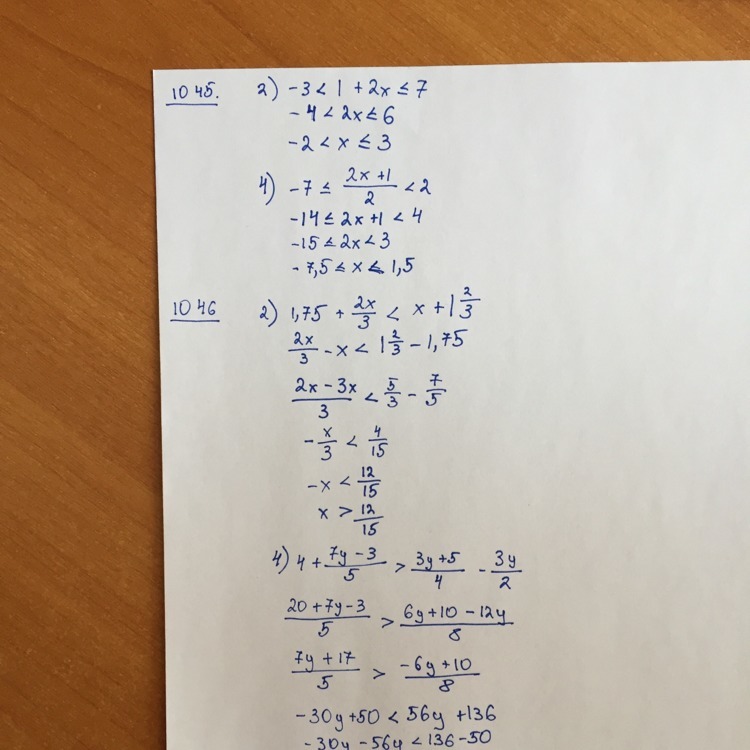 1045. 2) -3 < 1 + 2x ≤ 7
-4 < 2x ≤ 6
-2 < x ≤ 3
4) -7 ≤ (2x+1)/2 < 2
-14 ≤ 2x+1 < 4
-15 ≤ 2x < 3
-7,5 ≤ x ≤ 1,5
1046 2) 1,75 + 2x/3 < x + 1 2/3
2x/3 - x < 1 2/3 - 1,75
(2x - 3x)/3 < 5/3 - 7/5
-x/3 < 4/15
-x < 12/15
x > 12/15
4) 4 + (7y - 3)/5 > (3y + 5)/4 - 3y/2
(20 + 7y - 3)/5 > (6y + 10 - 12y)/8
(7y + 17)/5 > (-6y + 10)/8
-30y + 50 < 56y + 136
-30y - 56y < 136 - 50